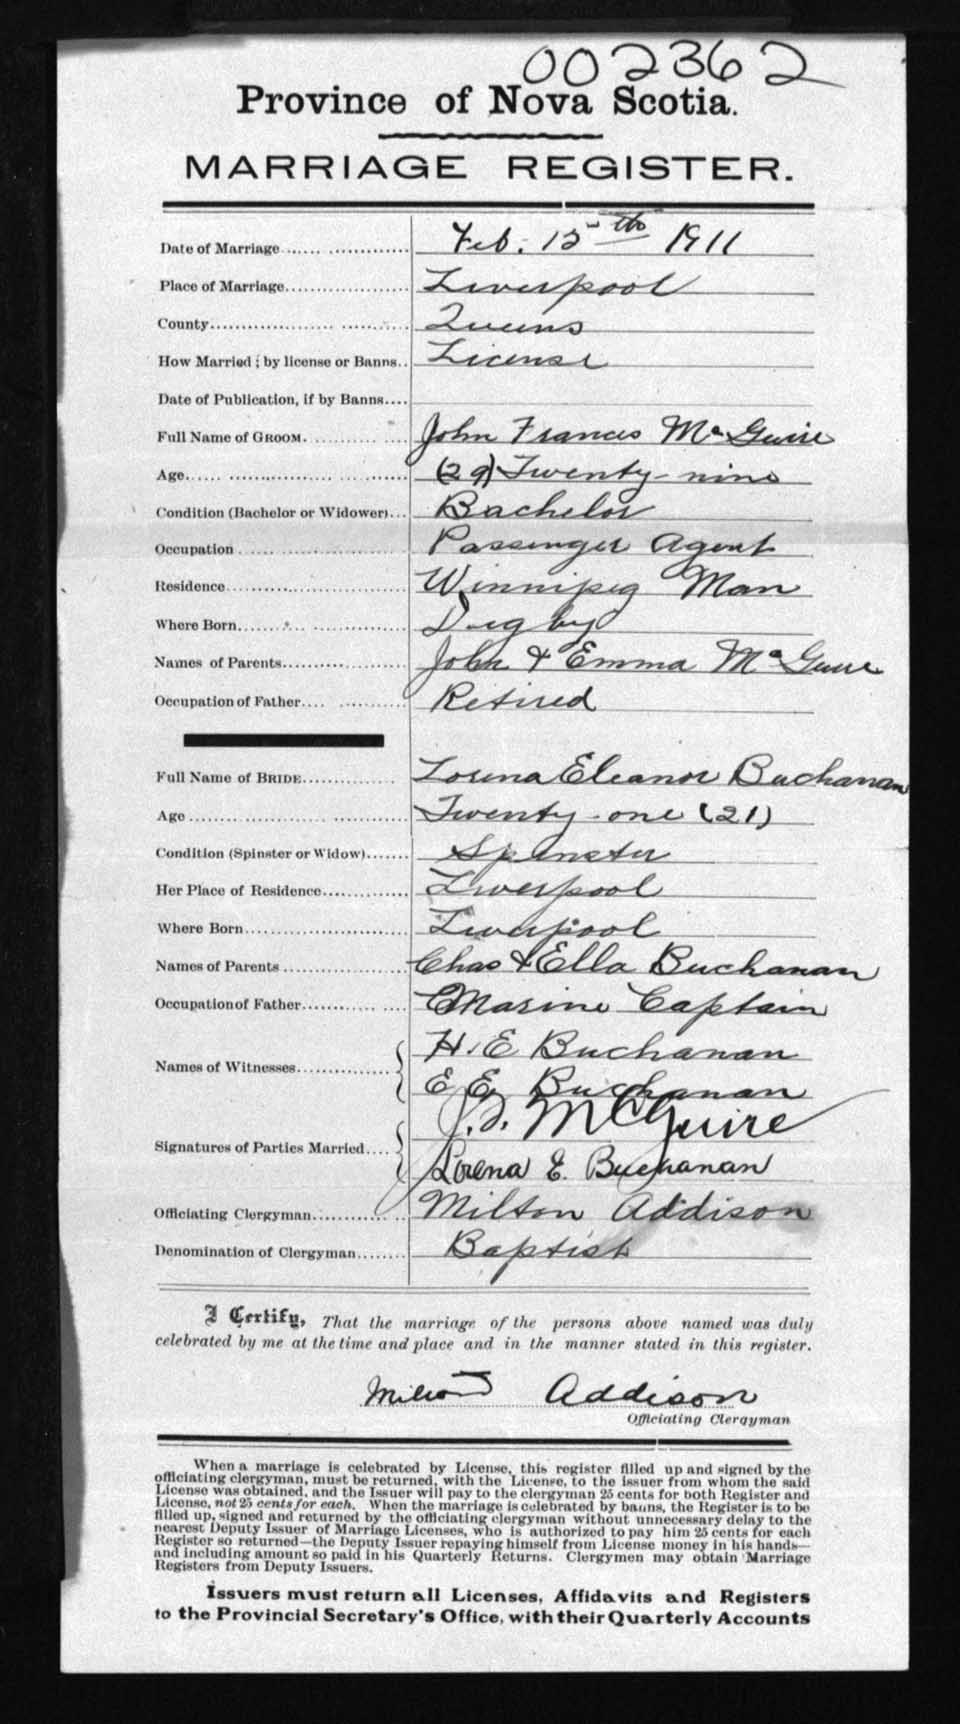 002362
Province of Nova Scotia.
MARRIAGE REGISTER.
Date of Marriage Feb. 15th 1911
Place of Marriage Liverpool
County Queens
How Married ; by license or Banns License
Date of Publication, if by Banns
Full Name of GROOM John Francis McGuire
Age (29) Twenty-nine
Condition (Bachelor or Widower) Bachelor
Occupation Passenger Agent
Residence Winnipeg Man
Where Born Digby
Names of Parents John & Emma McGuire
Occupation of Father Retired
Full Name of BRIDE Lorena Eleanor Buchanan
Age Twenty-one (21)
Condition (Spinster or Widow) Spinster
Her Place of Residence Liverpool
Where Born Liverpool
Names of Parents Chas & Ella Buchanan
Occupation of Father Marine Captain
Names of Witnesses H. E Buchanan
E E Buchanan
Signatures of Parties Married J. F. McGuire
Lorena E. Buchanan
Officiating Clergyman Milton Addison
Denomination of Clergyman Baptist
I Certify, That the marriage of the persons above named was duly
celebrated by me at the time and place and in the manner stated in this register.
Milton Addison
Officiating Clergyman
When a marriage is celebrated by License, this register filled up and signed by the
officiating clergyman, must be returned, with the License, to the issuer from whom the said
License was obtained, and the Issuer will pay to the clergyman 25 cents for both Register and
License, not 25 cents for each. When the marriage is celebrated by banns, the Register is to be
filled up, signed and returned by the officiating clergyman without unnecessary delay to the
nearest Deputy Issuer of Marriage Licenses, who is authorized to pay him 25 cents for each
Register so returned—the Deputy Issuer repaying himself from License money in his hands—
and including amount so paid in his Quarterly Returns. Clergymen may obtain Marriage
Registers from Deputy Issuers.
Issuers must return all Licenses, Affidavits and Registers
to the Provincial Secretary's Office, with their Quarterly Accounts